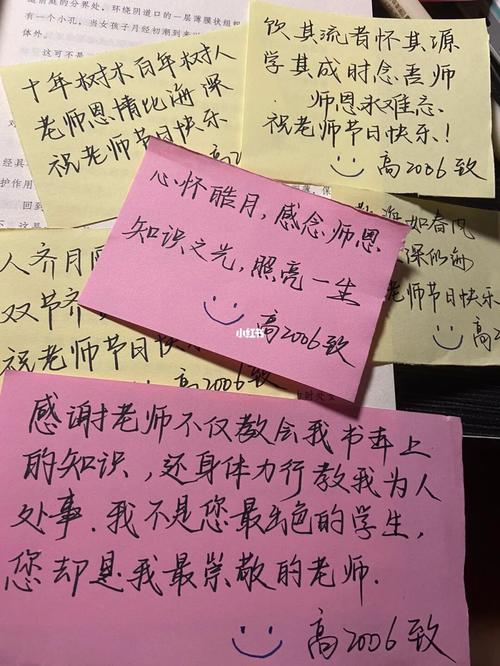 的分界处，环绕阴道口的一层薄膜状组
有一个小孔，当女孩子月经初潮到来
体外。
这可不是
十年树木百年树人
老师恩情比海深
祝老师节日快乐
高2
饮其流者怀其源
学其成时念吾师
师恩永难忘
祝老师节日快乐!
高2006致
心怀皓月，感念师恩
知识之光，照亮一生
高2006致
小红书
如春风
深似海
师节日快乐
高2
人齐月
双节齐
祝老师节日快乐
高2006致
感谢老师不仅教会我书本上
的知识，还身体力行教我为人
处事.我不是您最出色的学生，
您却是我最崇敬的老师.
高2006致